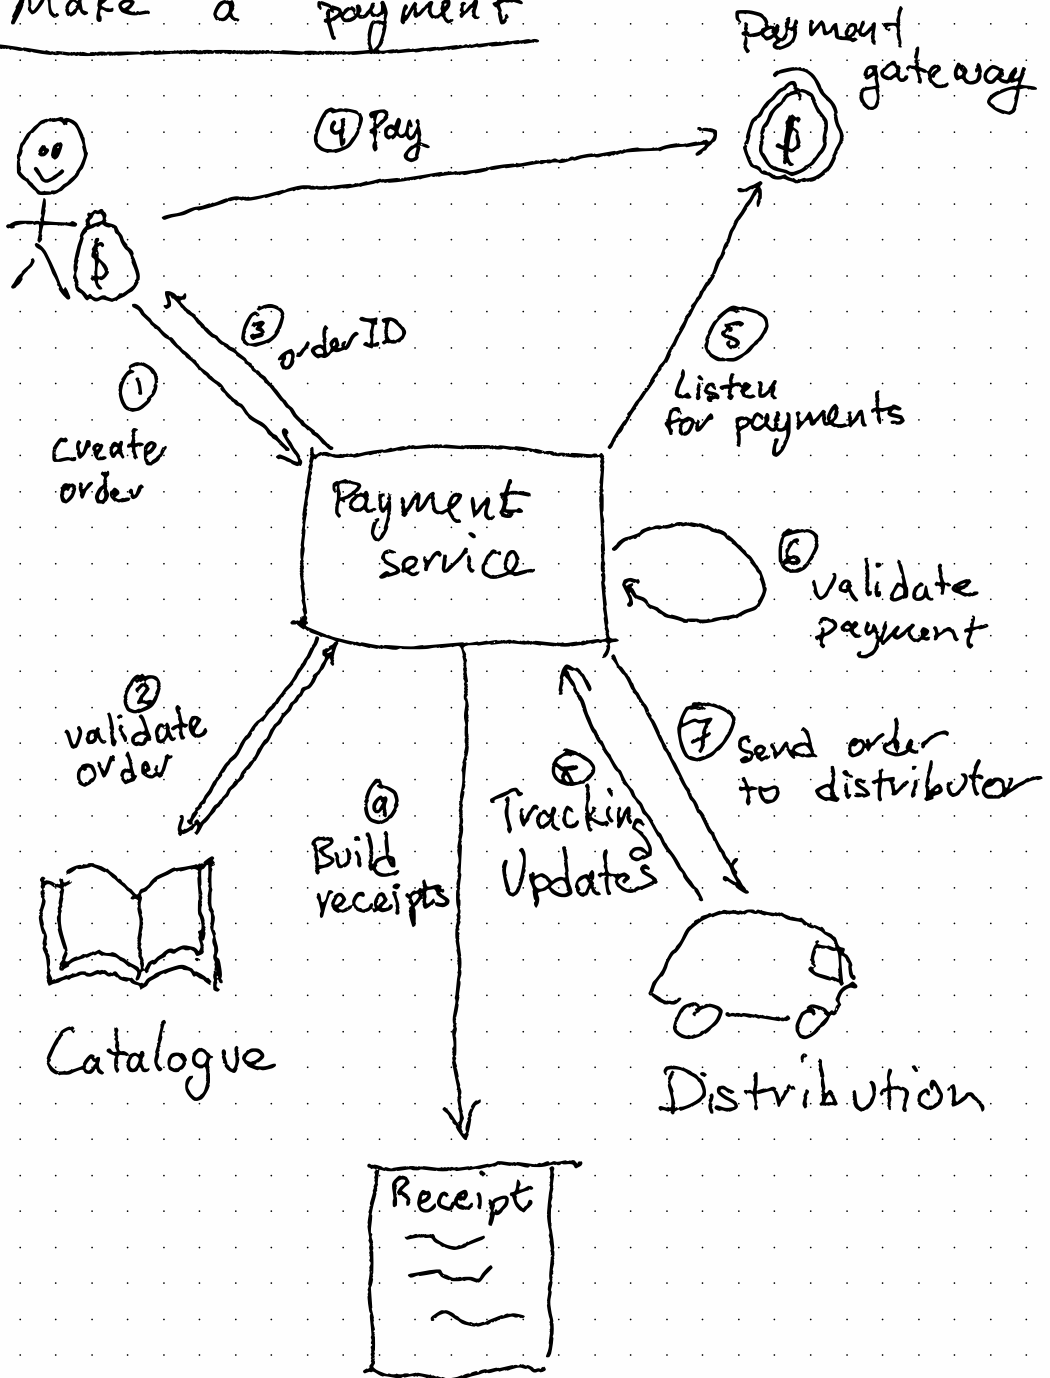 Make a payment
Payment
gateway
④ Pay
$
$
③
orderID
①
Create
order
⑤
Listen
for payments
Payment
service
⑥
validate
payment
②
validate
order
⑦ Send order
to distributor
⑧
Tracking
Updates
⑨
Build
receipts
Catalogue
Distribution
Receipt